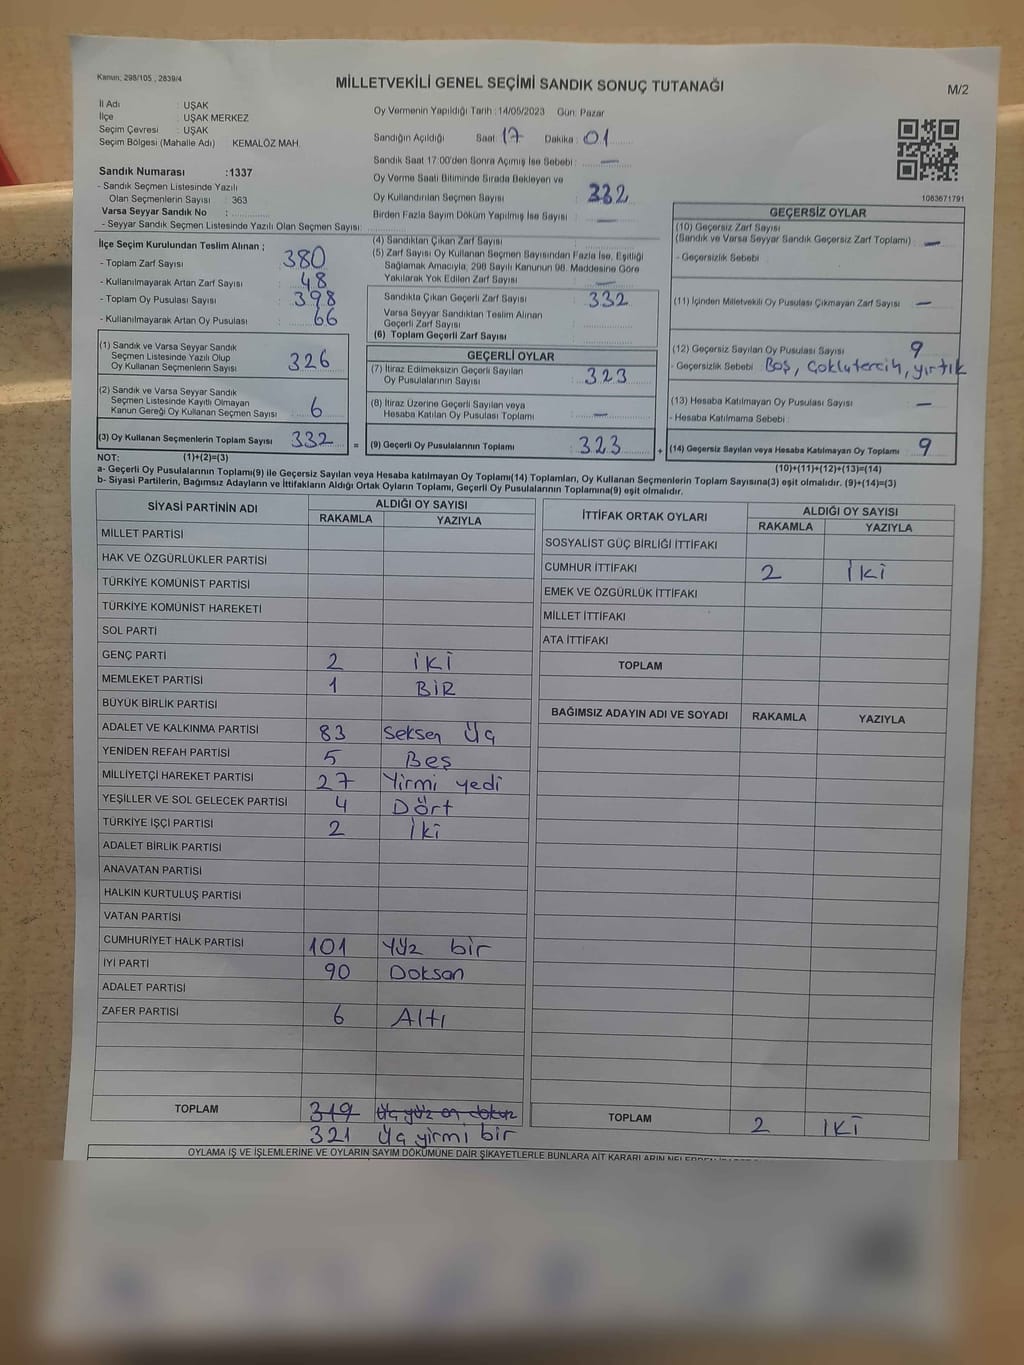 Kanun, 298/105 , 2839/4
MİLLETVEKİLİ GENEL SEÇİMİ SANDIK SONUÇ TUTANAĞI
M/2
İl Adı : UŞAK
İlçe : UŞAK MERKEZ
Seçim Çevresi : UŞAK
Seçim Bölgesi (Mahalle Adı) KEMALÖZ MAH.
Oy Vermenin Yapıldığı Tarih : 14/05/2023 Gün: Pazar
Sandığın Açıldığı Saat 17 Dakika : 01
Sandık Saat 17:00'den Sonra Açımış İse Sebebi : —
Oy Verme Saati Bitiminde Sırada Bekleyen ve
Oy Kullandırılan Seçmen Sayısı 332
Birden Fazla Sayım Döküm Yapılmış İse Sayısı : —
1083671791
Sandık Numarası :1337
- Sandık Seçmen Listesinde Yazılı
Olan Seçmenlerin Sayısı : 363
Varsa Seyyar Sandık No :
- Seyyar Sandık Seçmen Listesinde Yazılı Olan Seçmen Sayısı:
İlçe Seçim Kurulundan Teslim Alınan ;
- Toplam Zarf Sayısı 380
- Kullanılmayarak Artan Zarf Sayısı : 48
- Toplam Oy Pusulası Sayısı : 398
- Kullanılmayarak Artan Oy Pusulası : 66
(1) Sandık ve Varsa Seyyar Sandık
Seçmen Listesinde Yazılı Olup
Oy Kullanan Seçmenlerin Sayısı : 326
(2) Sandık ve Varsa Seyyar Sandık
Seçmen Listesinde Kayıtlı Olmayan
Kanun Gereği Oy Kullanan Seçmen Sayısı : 6
(3) Oy Kullanan Seçmenlerin Toplam Sayısı : 332 =
(4) Sandıktan Çıkan Zarf Sayısı :
(5) Zarf Sayısı Oy Kullanan Seçmen Sayısından Fazla İse, Eşitliği
Sağlamak Amacıyla, 298 Sayılı Kanunun 98. Maddesine Göre
Yakılarak Yok Edilen Zarf Sayısı : —
Sandıkta Çıkan Geçerli Zarf Sayısı : 332
Varsa Seyyar Sandıktan Teslim Alınan
Geçerli Zarf Sayısı :
(6) Toplam Geçerli Zarf Sayısı :
GEÇERLİ OYLAR
(7) İtiraz Edilmeksizin Geçerli Sayılan
Oy Pusulalarının Sayısı : 323
(8) İtiraz Üzerine Geçerli Sayılan veya
Hesaba Katılan Oy Pusulası Toplamı : —
(9) Geçerli Oy Pusulalarının Toplamı : 323 +
GEÇERSİZ OYLAR
(10) Geçersiz Zarf Sayısı
(Sandık ve Varsa Seyyar Sandık Geçersiz Zarf Toplamı) : —
- Geçersizlik Sebebi
(11) İçinden Milletvekili Oy Pusulası Çıkmayan Zarf Sayısı : —
(12) Geçersiz Sayılan Oy Pusulası Sayısı : 9
- Geçersizlik Sebebi Boş, çoklutercih, yırtık
(13) Hesaba Katılmayan Oy Pusulası Sayısı : —
- Hesaba Katılmama Sebebi :
(14) Geçersiz Sayılan veya Hesaba Katılmayan Oy Toplamı : 9
NOT: (1)+(2)=(3)
(10)+(11)+(12)+(13)=(14)
a- Geçerli Oy Pusulalarının Toplamı(9) ile Geçersiz Sayılan veya Hesaba katılmayan Oy Toplamı(14) Toplamları, Oy Kullanan Seçmenlerin Toplam Sayısına(3) eşit olmalıdır. (9)+(14)=(3)
b- Siyasi Partilerin, Bağımsız Adayların ve İttifakların Aldığı Ortak Oyların Toplamı, Geçerli Oy Pusulalarının Toplamına(9) eşit olmalıdır.
SİYASİ PARTİNİN ADI ALDIĞI OY SAYISI
RAKAMLA YAZIYLA
MİLLET PARTİSİ
HAK VE ÖZGÜRLÜKLER PARTİSİ
TÜRKİYE KOMÜNİST PARTİSİ
TÜRKİYE KOMÜNİST HAREKETİ
SOL PARTİ
GENÇ PARTİ 2 İKİ
MEMLEKET PARTİSİ 1 BİR
BÜYÜK BİRLİK PARTİSİ
ADALET VE KALKINMA PARTİSİ 83 Seksen Üç
YENİDEN REFAH PARTİSİ 5 Beş
MİLLİYETÇİ HAREKET PARTİSİ 27 Yirmi yedi
YEŞİLLER VE SOL GELECEK PARTİSİ 4 Dört
TÜRKİYE İŞÇİ PARTİSİ 2 İki
ADALET BİRLİK PARTİSİ
ANAVATAN PARTİSİ
HALKIN KURTULUŞ PARTİSİ
VATAN PARTİSİ
CUMHURİYET HALK PARTİSİ 101 Yüz bir
İYİ PARTİ 90 Doksan
ADALET PARTİSİ
ZAFER PARTİSİ 6 Altı
TOPLAM 319 Üç yüz on dokuz
321 Üç yirmi bir
İTTİFAK ORTAK OYLARI ALDIĞI OY SAYISI
RAKAMLA YAZIYLA
SOSYALİST GÜÇ BİRLİĞİ İTTİFAKI
CUMHUR İTTİFAKI 2 İki
EMEK VE ÖZGÜRLÜK İTTİFAKI
MİLLET İTTİFAKI
ATA İTTİFAKI
TOPLAM
BAĞIMSIZ ADAYIN ADI VE SOYADI RAKAMLA YAZIYLA
TOPLAM 2 İKİ
OYLAMA İŞ VE İŞLEMLERİNE VE OYLARIN SAYIM DÖKÜMÜNE DAİR ŞİKAYETLERLE BUNLARA AİT KARARLARIN